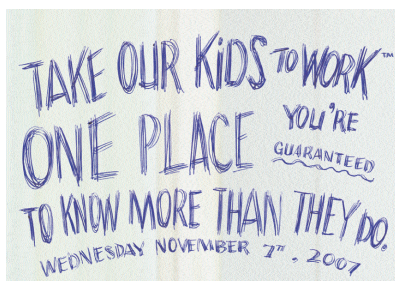 TAKE OUR KiDS TO WORK™
ONE PLACE YOU'RE
GUARANTEED
TO KNOW MORE THAN THEY DO.
WEDNESDAY NOVEMBER 7TH, 2007